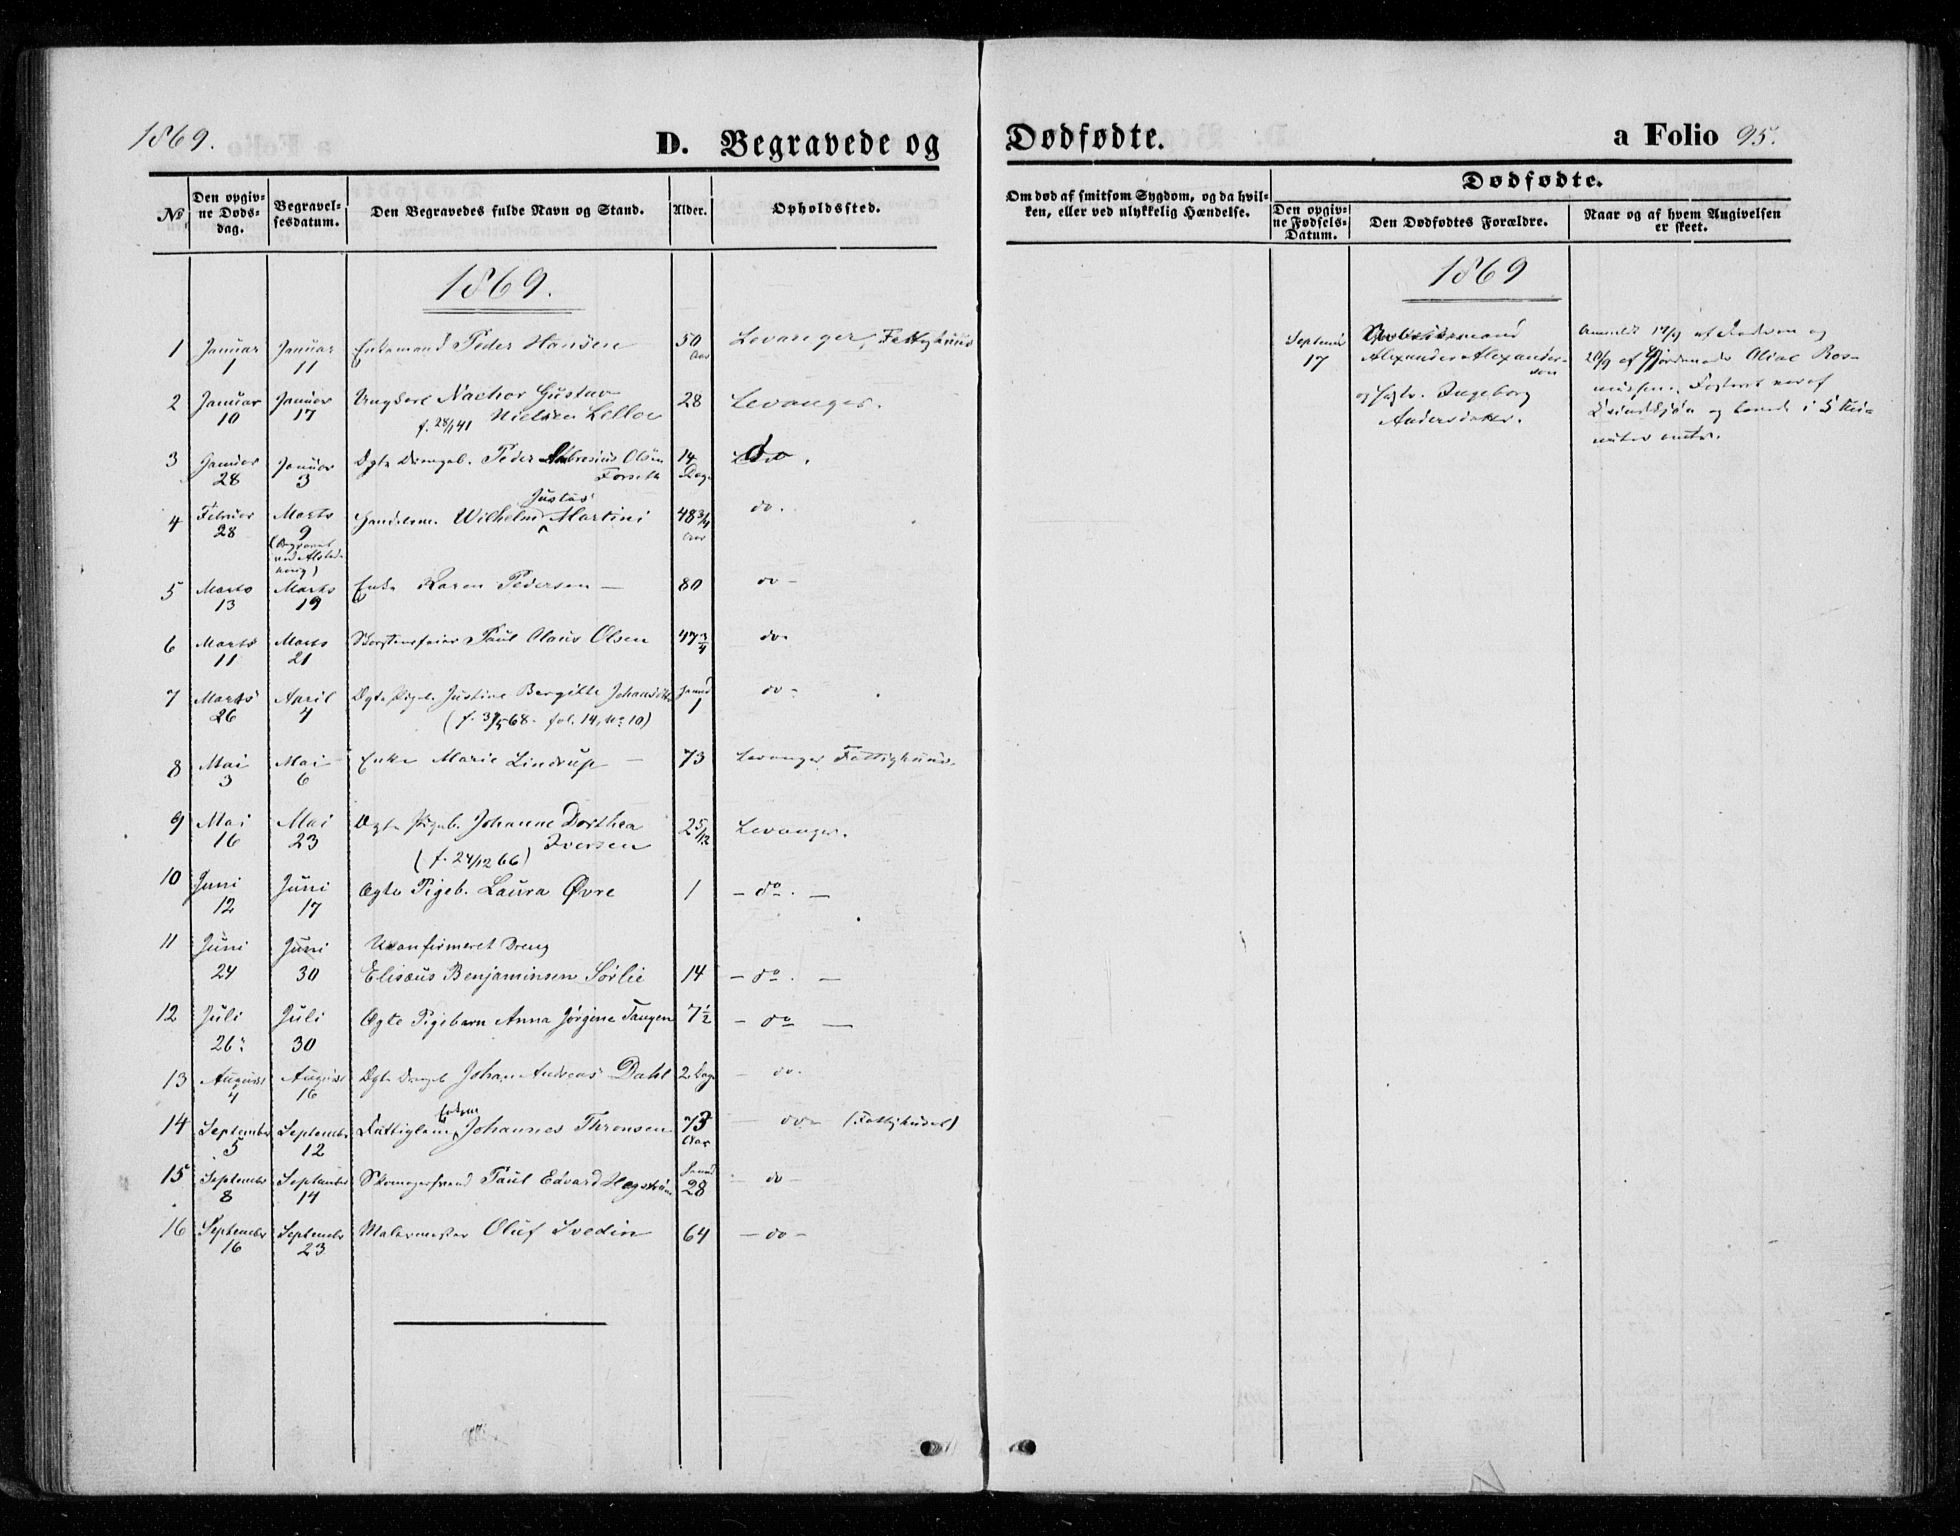 1869.
D. Begravede og
№
Den opgiv-
ne Døds-
dag.
Begravel-
sesdatum.
Den Begravedes fulde Navn og Stand.
Alder.
Opholdssted.
1869.
1 Januar 1 Januar 11 Enkemand Peder Hansen 50 Aar Levanger, Fattighuus
2 Januar 10 Januar 17 Ungkarl Nachor Gustav 28 Levanger.
f. 28/1 41 Nielsen
3 Januar 28 Januar 3 Ægte Drengeb. Peder Olsen 14 Dage do.
Forseth
Justus
4 Februar 28 Marts 9 Handelsm. Wilhelm Martini 48 3/4 Aar do.
5 Marts 13 Marts 19 Enke Karen Pedersen — 80 do -
6 Marts 11 Marts 21 Skorstensfeier Paul Claus Olsen 47 3/4 do-
7 Marts 26 April 4 Ægte Pigeb. Justine Bergitte 1 do -
68. fol. 14, No 10)
8 Mai 3 Mai 6 Enke Marie Lindrup — 73 Levanger Fattighuus.
9 Mai 16 Mai 23 Ægte Pigeb. Johanne Dorthea 2 5/12 Levanger.
(f. 24/12 66) Iversen
10 Juni 12 Juni 17 Ægte Pigeb. Laura Øvre 1 - do. —
11 Juni 24 Juni 30 Ukonfirmeret Dreng
Elisæus Benjaminsen Sørlie 14 - do. —
12 Juli 26 Juli 30 Ægte Pigebarn Anna Jørgine Tangen 7 1/2 - do —
13 August 4 August 16 Ægte Drengeb Johan Andreas Dahl 2 Dage - do.
Enkem
14 September 5 September 12 Fattiglem Johannes Thronsen 73 Aar — do - (Fattighuset)
15 September 8 September 14 Skomagersvend Paul Edvard Hagström 28 - do -
16 September 16 September 23 Malermester Oluf Svedin 64 - do -
Dødfødte.
a Folio 95.
Om død af smitsom Sygdom, og da hvil-
ken, eller ved ulykkelig Hændelse.
Dødfødte.
Den opgiv-
ne Fødsels-
Datum.
Den Dødfødtes Forældre.
Naar og af hvem Angivelsen
er skeet.
1869
September
17
Alexander Alexander-
sen
og Ingeborg
Andersdatter.
Anmeldt 17/9 af Faderen og
20/9 af Gjordemoder Ras-
mussen. Fosteret var af
Qvindekjøn og levede i 5 Mi-
nuter